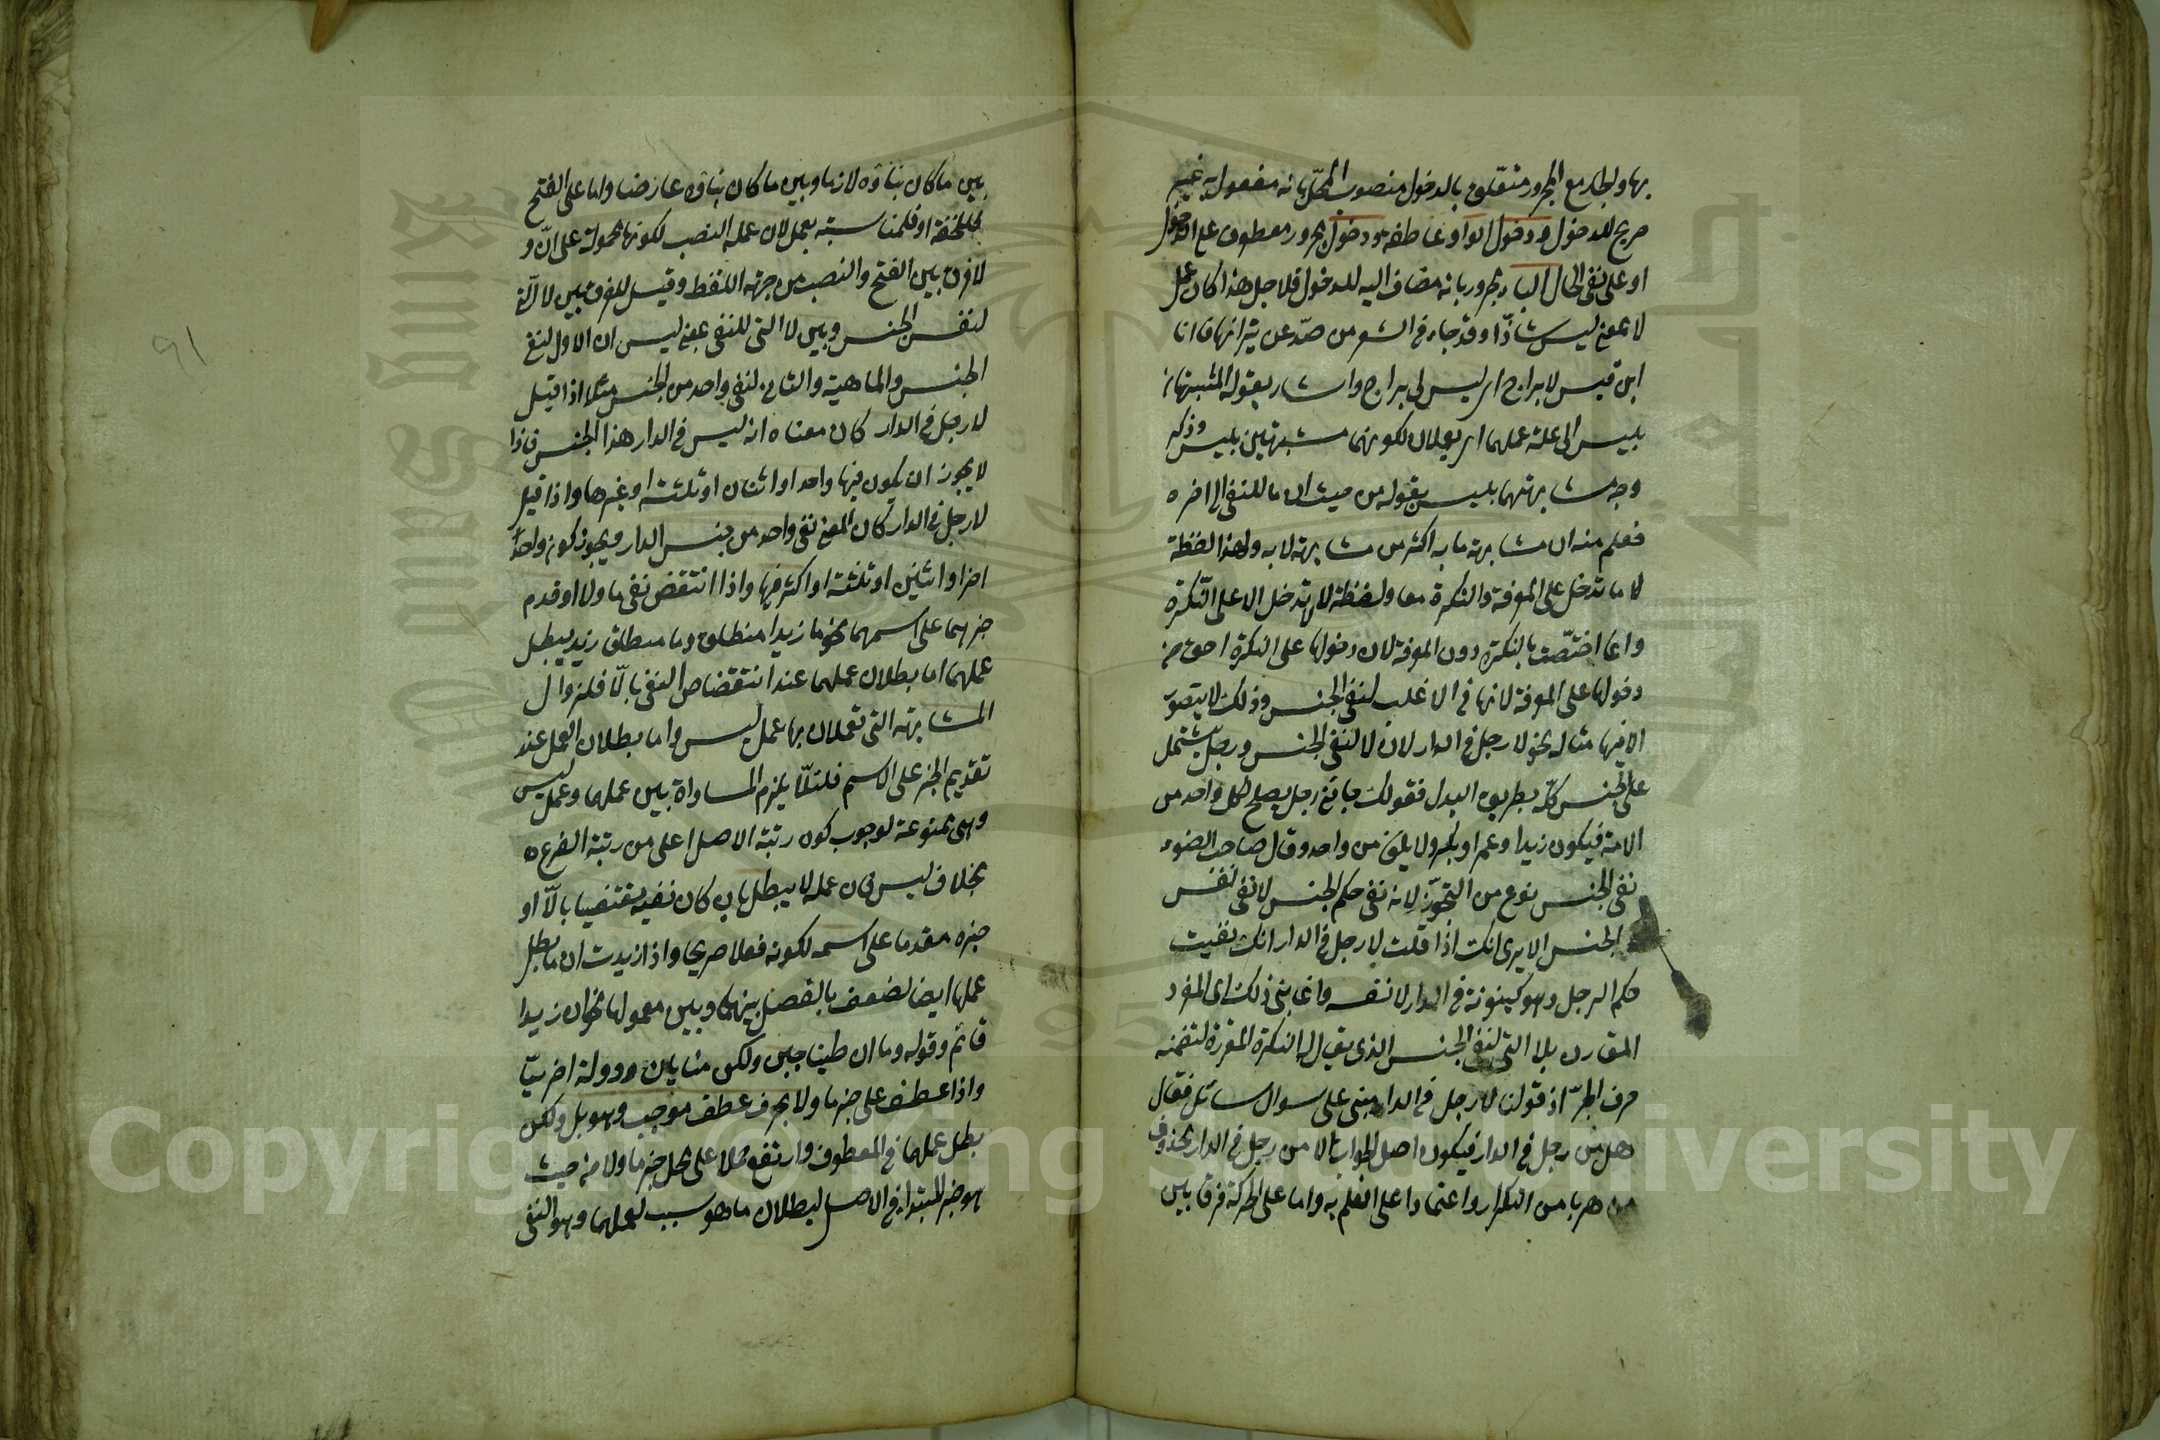 بها والجار مع المجرور متعلق بالدخول منصوب المحل بانه مفعول به غير
صريح للدخول ودخول الواو عاطفة ودخول مجرور معطوف على الدخول
او على نفى الحال الباء مجرور بانه مضاف اليه للدخول فلاجل هذا كان عمل
لا بمعنى ليس شاذا وقد جاء في الشعر من صد عن نيرانها فانا
ابن قيس لا براح اى ليس لى براح واشار بقوله المشبهتان
بليس الى علة عملهما اى يعملان لكونهما مشبهتين بليس وذكر
وجه مشابهتهما بليس بقوله من حيث ان ما للنفى الى اخره
فعلم منه ان مشابهة ما به اكثر من مشابهة لا به ولهذا لفظة
لا ما تدخل على المعرفة والنكرة معا ولفظة لا لا تدخل الا على النكرة
وانما اختصت بالنكرة دون المعرفة لان دخولها على النكرة احق من
دخولها على المعرفة لانها في الاغلب لنفى الجنس وذلك لا يتصور
الا فيها مثاله نحو لا رجل في الدار لان لا لنفى الجنس ورجل يشتمل
على الجنس كله بطريق البدل فقولك جاءني رجل يصلح لكل واحد من
الامة فيكون زيدا وعمرا وبكرا ولا يلقى من واحد وقال صاحب الضوء
نفى الجنس نوع من التجوز لانه نفى حكم الجنس لا نفى نفس
الجنس الا يرى انك اذا قلت لا رجل في الدار انك نفيت
حكم الرجل وهو كينونة في الدار لا نفسه وانما بنى ذلك اى المفرد
المقارن بلا التى لنفى الجنس الذى يقال النكرة المقررة لتضمنه
حرف الجر اذ قولنا لا رجل في الدار مبنى على سوال سائل فقال
هل من رجل في الدار فيكون اصل الجواب لا من رجل في الدار بحذف
من هربا من التكرار واعتمادا على العلم به واما على الحركة فرقا بين
بين ما كان بناؤه لازما وبين ما كان بناؤه عارضا واما على الفتح
فللخفة او لمناسبته بعمل لان عمله النصب لكونها محمولة على ان و
لا فرق بين الفتح والنصب من جهة اللفظ وقيل للفرق بين لا التى
لنفى الجنس وبين لا التى للنفى بمعنى ليس ان الاول لنفى
الجنس والماهية والثانى لنفى واحد من الجنس مثلا اذا قيل
لا رجل في الدار كان معناه انه ليس في الدار هذا الجنس فاذا
لا يجوز ان يكون فيها واحد او اثنان او ثلثة او غيرها واذا قيل
لا رجل في الدار كان المعنى نفى واحد من جنس الدار ويجوز كون واحدا
اخر او اثنين او ثلثة او اكثر فيها واذا انتقض نفى ما ولا او قدم
خبرهما على اسمهما نحو ما زيد الا منطلق وما منطلق زيد يبطل
عملهما اما بطلان عملهما عند انتقاض النفى بالا فلزوال
المشابهة التى تعملان بها عمل ليس واما بطلان العمل عند
تقديم الخبر على الاسم فلئلا يلزم المساواة بين عملهما وعمل ليس
وهى ممنوعة لوجوب كون رتبة الاصل اعلى من رتبة الفرع
بخلاف ليس فان عمله لا يبطل بان كان نفيه منتقضا بالا او
خبره مقدما على اسمه لكونه فعلا صريحا واذا زيدت ان ما بطل
عملها ايضا لضعف بالفصل بينها وبين معمولها نحو ما ان زيد
قائم وقوله وما ان طبنا جبن ولكن منايانا ودولة اخرينا
واذا عطف على خبر ما ولا بحرف عطف موجب وهو بل ولكن
بطل عملهما في المعطوف وارتفع حملا على محل خبر ما ولا من حيث
هو خبر المبتداء في الاصل لبطلان ما هو سبب لعملهما وهو النفى
91
Copyright © King Saud University